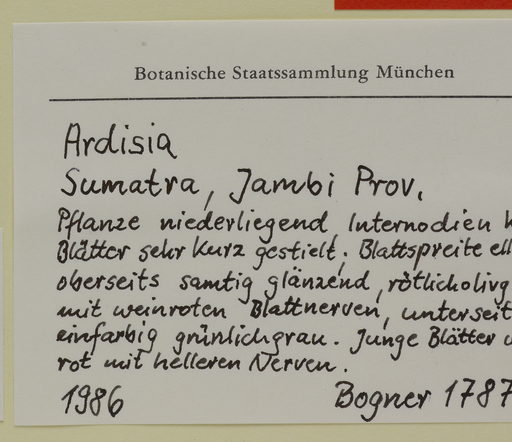 Botanische Staatssammlung München
Ardisia
Sumatra, Jambi Prov.
Pflanze niederliegend, Internodien
Blätter sehr kurz gestielt; Blattspreite
oberseits samtig glänzend, rötlicholivg
mit weinroten Blattnerven, unterseit
einfarbig grünlichgrau. Junge Blätter
rot mit helleren Nerven.
1986 Bogner 1787